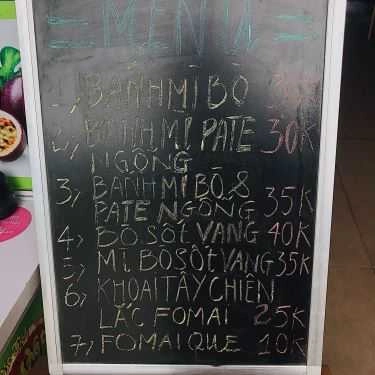 = MENU =
1, BÁNH MÌ BÒ 30K
2, BÁNH MÌ PATE 30K
NGỖNG
3, BÁNH MÌ BÒ &
PATE NGỖNG 35K
4, BÒ SỐT VANG 40K
5, MÌ BÒ SỐT VANG 35K
6, KHOAI TÂY CHIÊN
LẮC FOMAI 25K
7, FOMAI QUE 10K